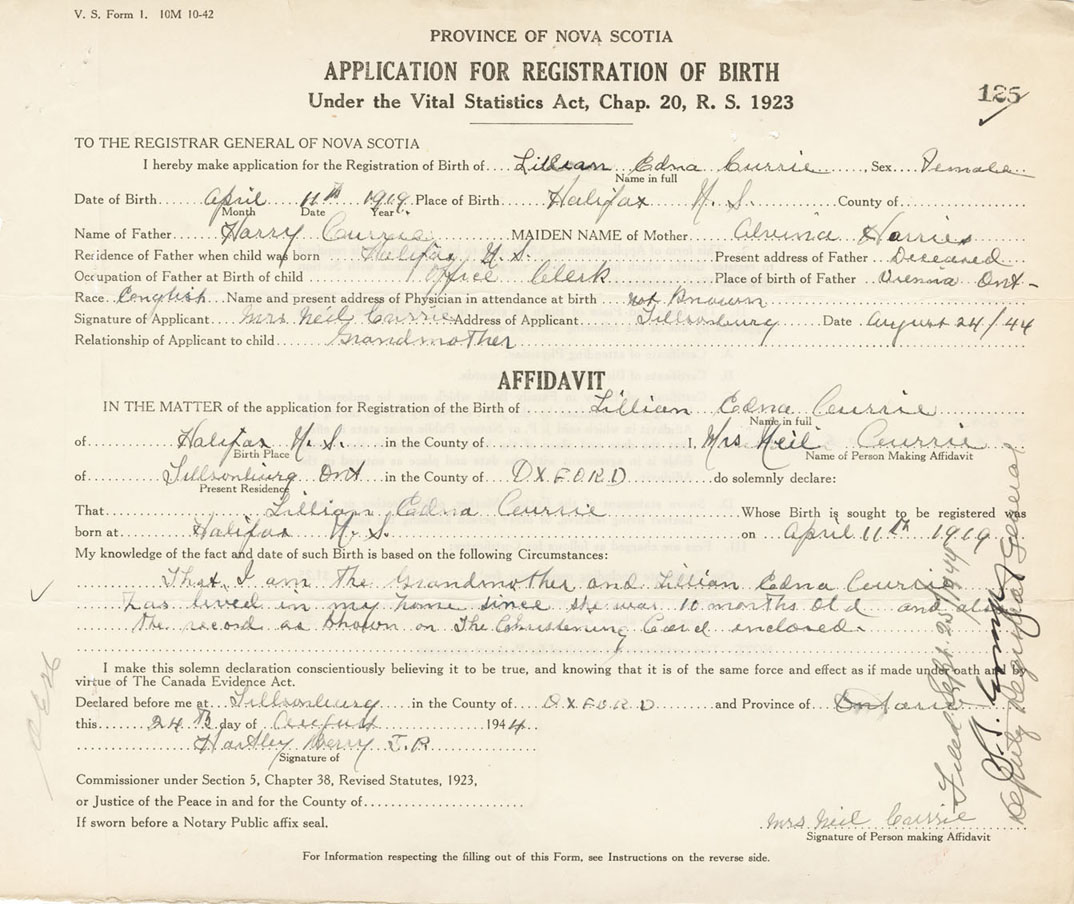 V. S. Form 1. 10M 10-42
PROVINCE OF NOVA SCOTIA
APPLICATION FOR REGISTRATION OF BIRTH
Under the Vital Statistics Act, Chap. 20, R. S. 1923
125
TO THE REGISTRAR GENERAL OF NOVA SCOTIA
I hereby make application for the Registration of Birth of Lillian Edna Currie Sex Female
Name in full
Date of Birth April 11th 1919 Place of Birth Halifax N. S. County of
Month Date Year
Name of Father Harry Currie MAIDEN NAME of Mother Alvina Harries
Residence of Father when child was born Halifax N. S. Present address of Father Deceased
Occupation of Father at Birth of child Office Clerk Place of birth of Father Vienna Ont-
Race English Name and present address of Physician in attendance at birth not Known
Signature of Applicant Mrs Neil Currie Address of Applicant Tillsonburg Date August 24/44
Relationship of Applicant to child Grandmother
AFFIDAVIT
IN THE MATTER of the application for Registration of the Birth of Lillian Edna Currie
Name in full
of Halifax N. S. in the County of I, Mrs Neil Currie
Birth Place Name of Person Making Affidavit
of Tillsonburg Ont in the County of OXFORD do solemnly declare:
Present Residence
That Lillian Edna Currie Whose Birth is sought to be registered was
born at Halifax N. S. on April 11th 1919
My knowledge of the fact and date of such Birth is based on the following Circumstances:
That I am the Grandmother and Lillian Edna Currie
has lived in my home since she was 10 months old and also
the record as shown on The Christening Card enclosed.
I make this solemn declaration conscientiously believing it to be true, and knowing that it is of the same force and effect as if made under oath and by
virtue of The Canada Evidence Act.
Declared before me at Tillsonburg in the County of OXFORD and Province of Ontario
this 24th day of August 1944
Hartley Berry J.P.
Signature of
Commissioner under Section 5, Chapter 38, Revised Statutes, 1923,
or Justice of the Peace in and for the County of
If sworn before a Notary Public affix seal.
Mrs Neil Currie
Signature of Person making Affidavit
For Information respecting the filling out of this Form, see Instructions on the reverse side.
Filed Sept. 25/1944
Deputy Registrar General